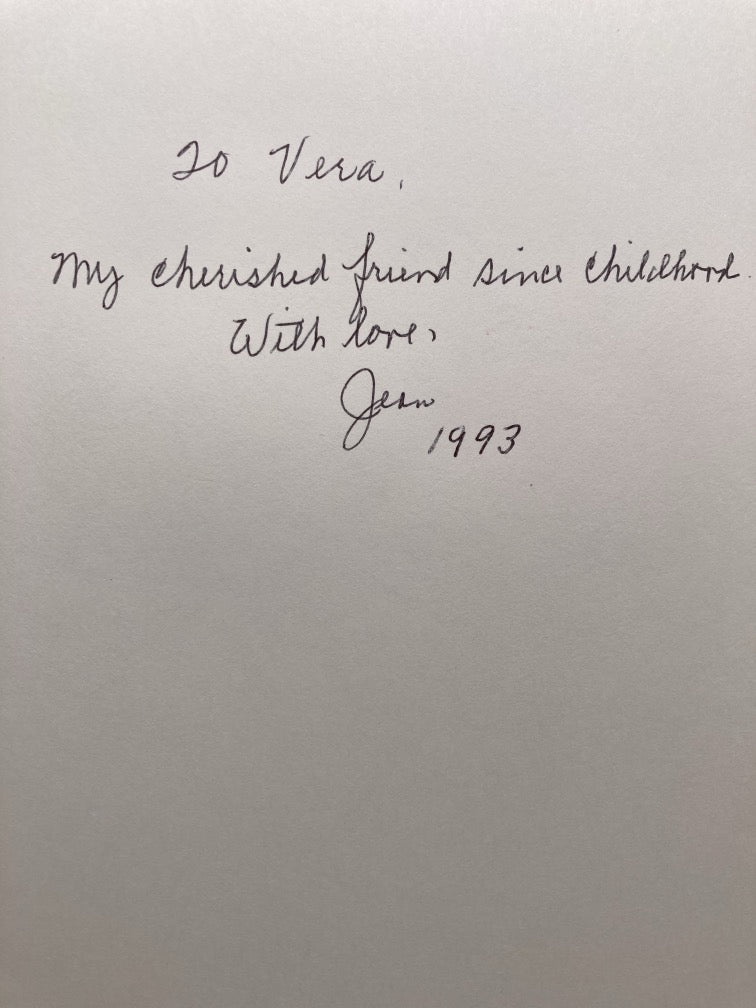 To Vera,
My cherished friend since childhood.
With love,
Jean
1993